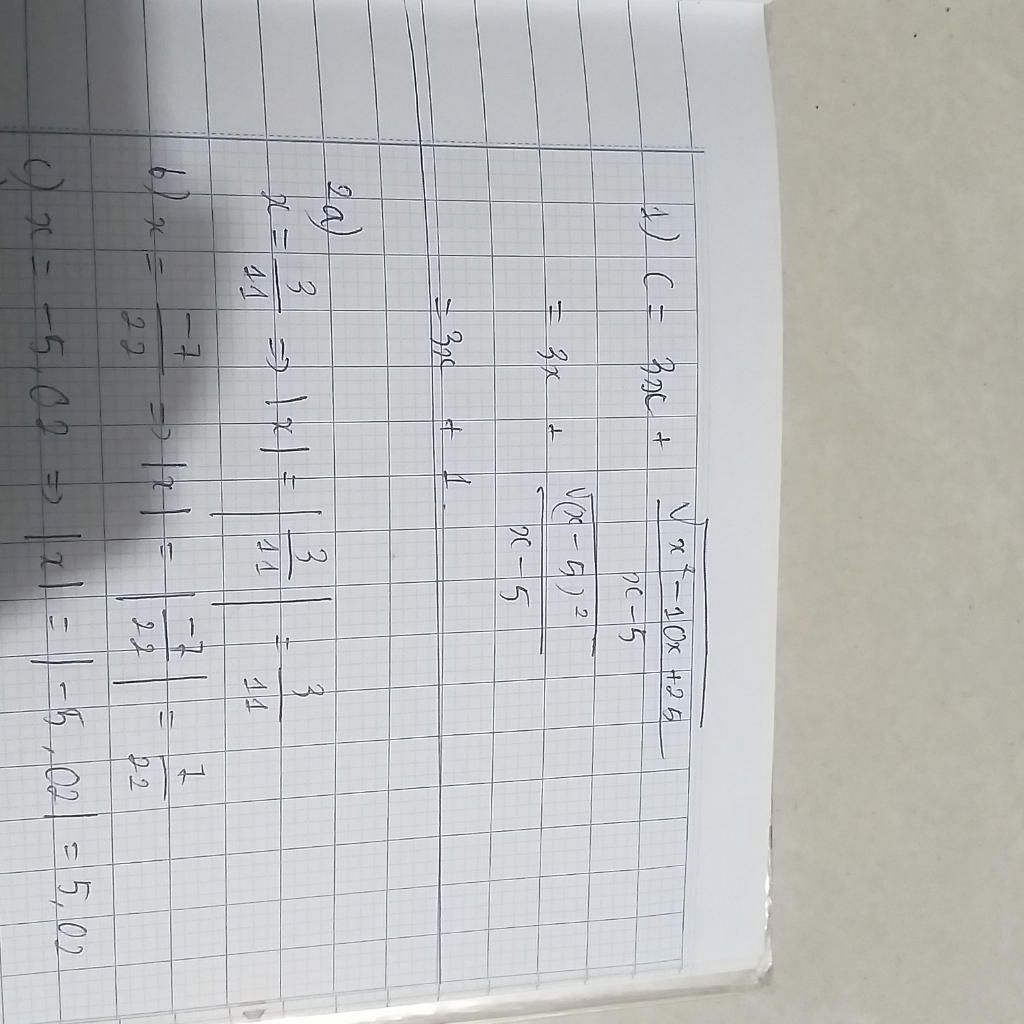 1) C = 3x + √(x² - 10x + 25) / (x - 5)
= 3x + √((x - 5)²) / (x - 5)
= 3x + 1
2a)
x = 3/11 => |x| = |3/11| = 3/11
b) x = -7/22 => |x| = |-7/22| = 7/22
c) x = -5,02 => |x| = |-5,02| = 5,02